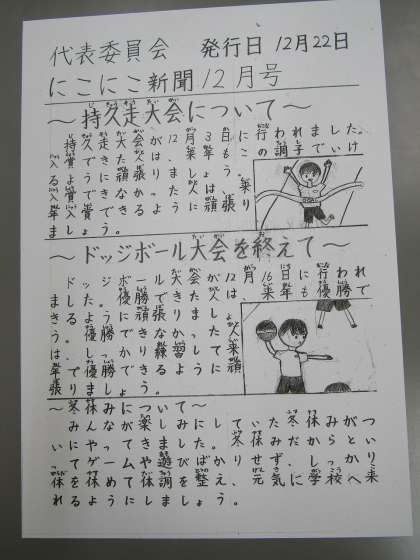 代表委員会 発行日 12月22日
にこにこ新聞12月号
～持久走大会について～
持久走大会が12月3日に行われました。
入賞できた人は、来年もこの調子でいけ
るように頑張りましょう。
入賞できなかった人は、来
年入賞できるように頑張り
ましょう。
～ドッジボール大会を終えて～
ドッジボール大会が12月16日に行われ
ました。優勝できた人は、来年も優勝で
きるように頑張りましょ
う。優勝できなかった人
は、しっかり練習して来
年優勝できるように頑
張りましょう。
～冬休みについて～
みんなが楽しみにしていた冬休みがつ
いにやってきました。冬休みだからとい
ってゲームや遊びばかりせず、しっかり
体を休めて体調を整え、元気に学校へ来
れるようにしましょう。